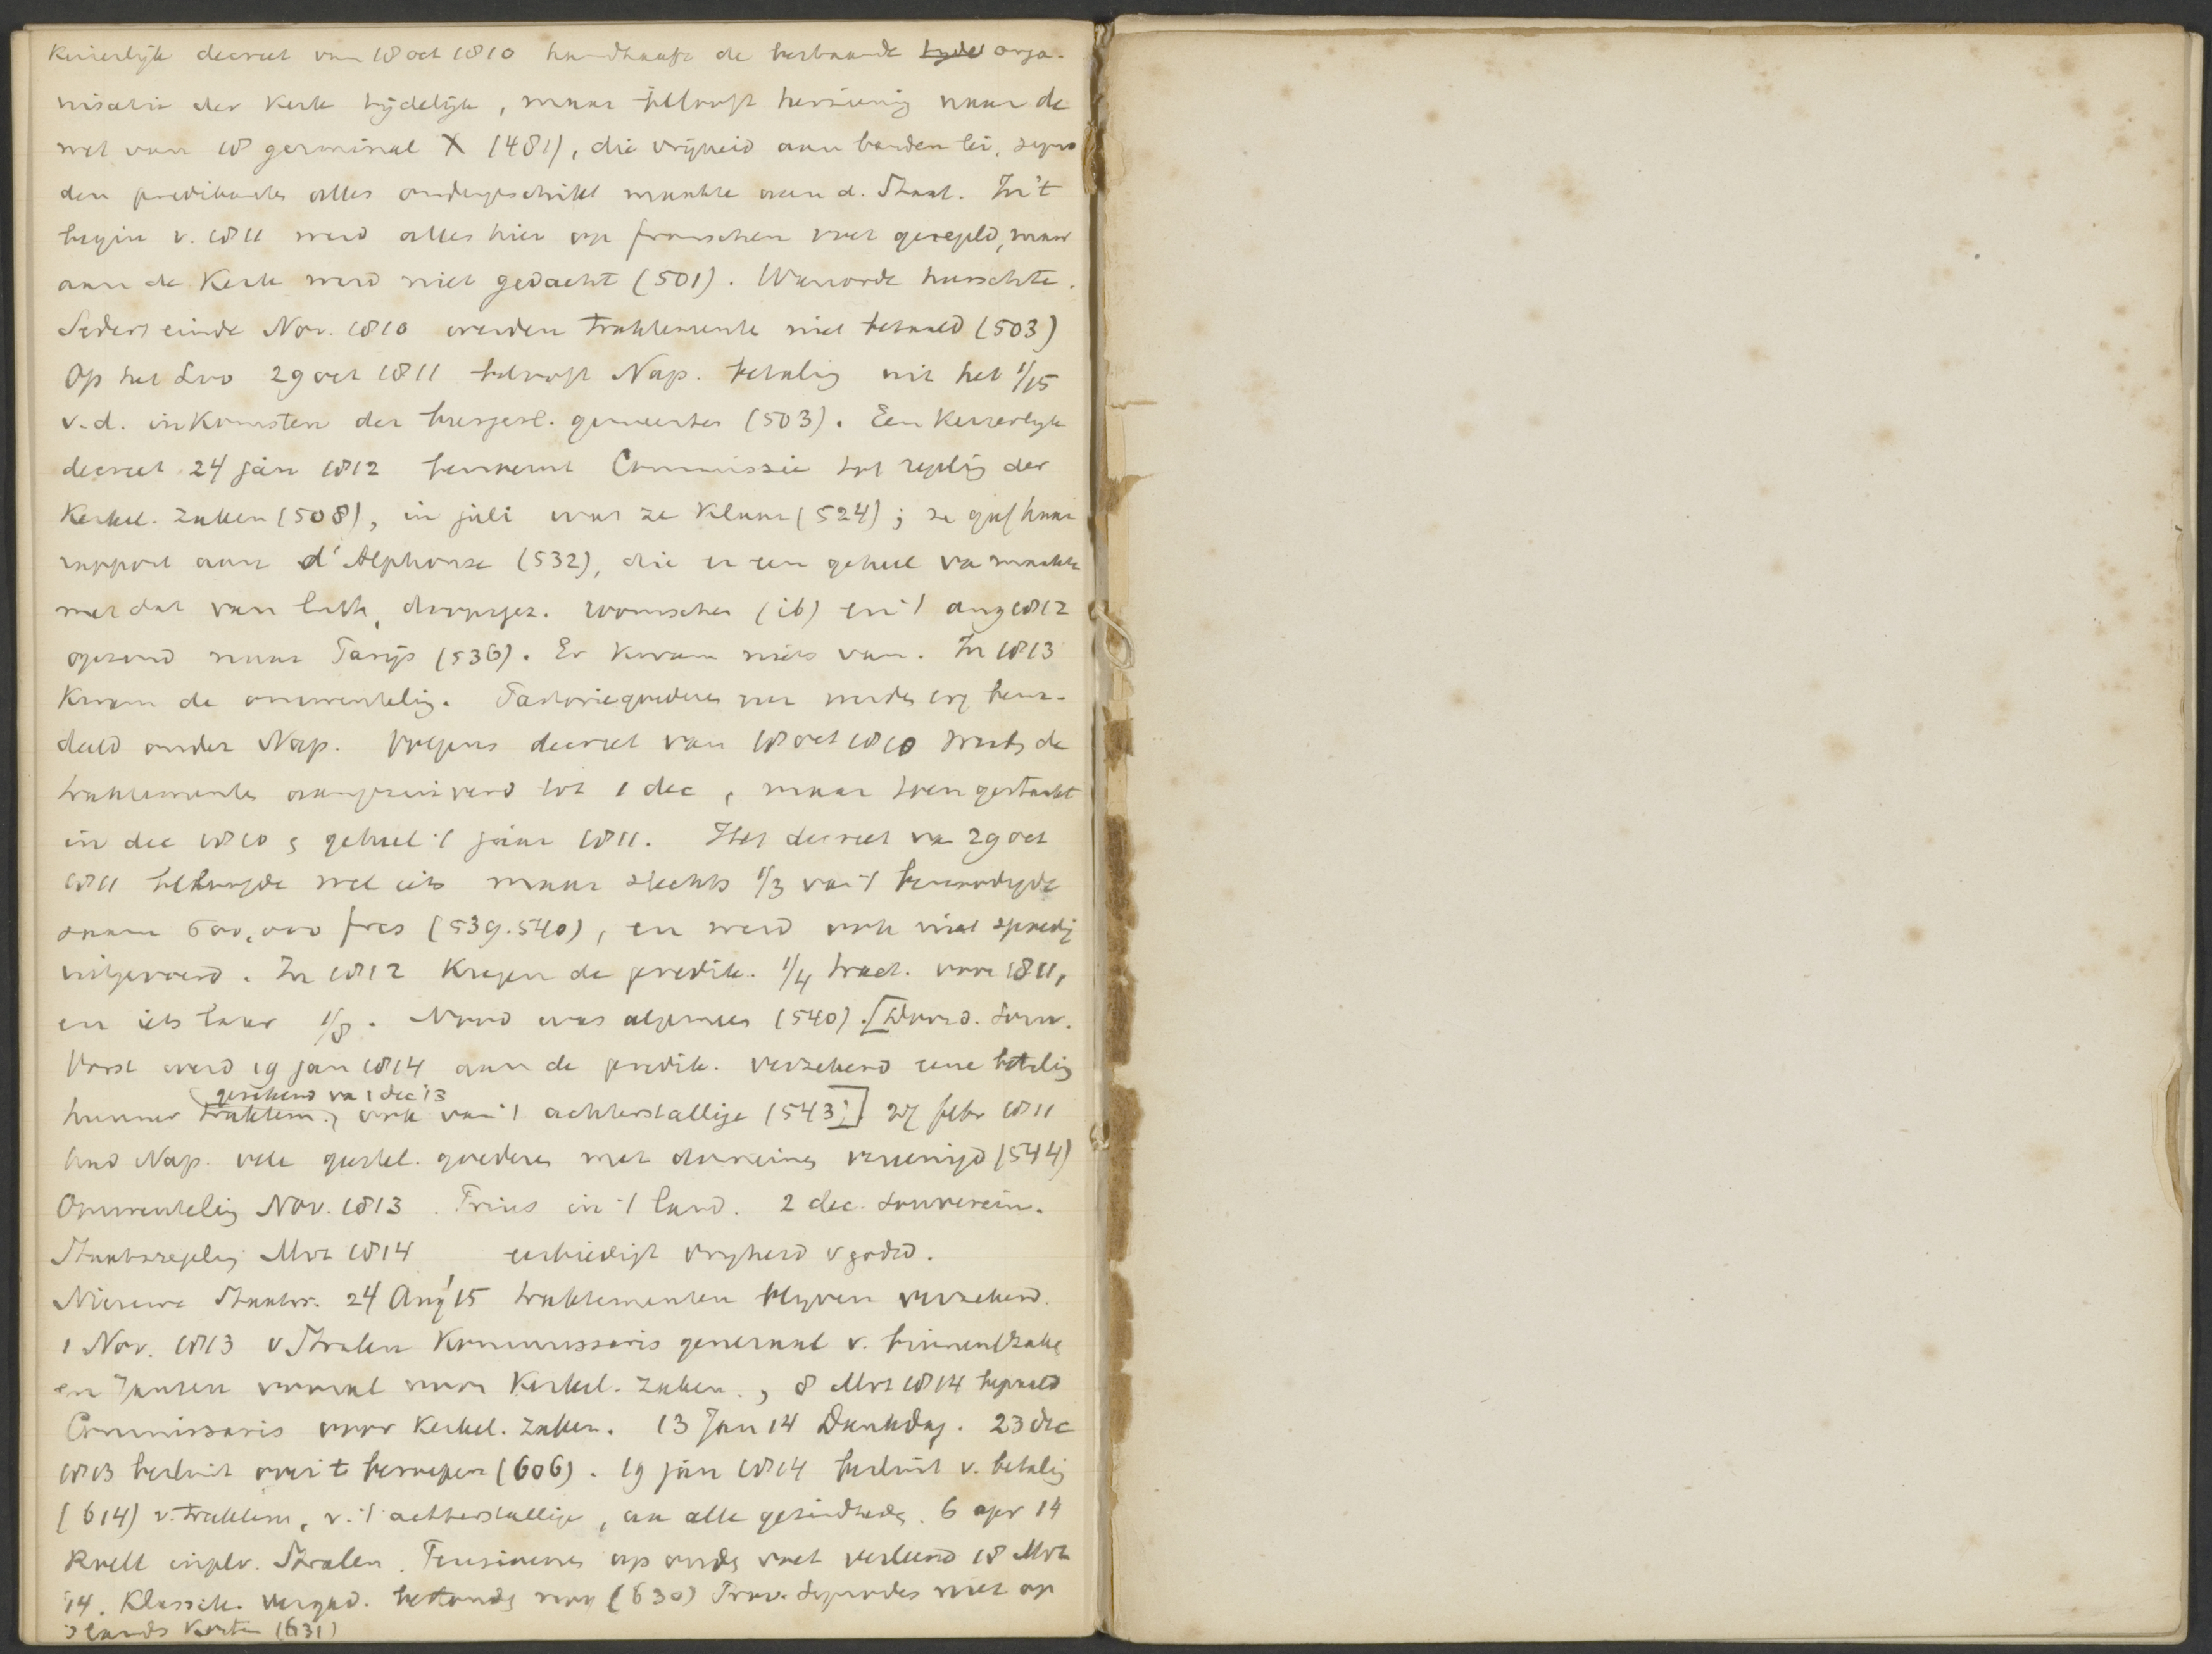 Keizerlijk decreet van 18 oct 1810 handhaaft de bestaande orga-
nisatie der Kerk tijdelijk, maar belooft herziening naar de
wet van 18 germinal X (481), die vrijheid aan banden lei,
den predikanten alles ondergeschikt maakte aan d. Staat. In 't
begin v. 1811 werd alles hier op franschen voet geregeld, maar
aan de Kerk werd niet gedacht (501). Wanorde heerschte.
Sedert einde Nov. 1810 werden traktementen niet betaald (503)
Op het Loo 29 oct 1811 belooft Nap. betaling uit het 1/15
v.d. inkomsten der burgerl. gemeenten (503). Een Keizerlijk
decreet 24 jan 1812 benoemt Commissie tot regeling der
Kerkel. zaken (508), in juli was ze klaar (524); ze gaf haar
rapport aan d'Alphonse (532), die er een geheel va maakte
met dat van (ib) en 't aug 1812
opzond naar Parijs (536). Er kwam niets van. In 1813
kwam de omwenteling. Pastoriegoederen werden erg bena-
deeld onder Nap. Volgens decreet van 18 oct 1810 de
traktementen tot 1 dec, maar toen gestaakt
in dec 1810 & geheel 't jaar 1811. Het decreet va 29 oct
1811 beloofde wel iets maar slechts 1/3 van 't benoodigde
saam 600,000 frcs (539.540), en werd ook niet spoedig
uitgevoerd. In 1812 kregen de predik. 1/4 tract. voor 1811,
en iets later 1/8. Nood was algemeen (540). [Door d. Souv.
Vorst werd 19 jan 1814 aan de predik. verzekerd eene betaling
gerekend va 1 dec 13
hunner traktem., ook van 't achterstallige (543;] 27 febr 1811
had Nap. vele geestel. goederen met domeinen vereenigd (544)
Omwenteling Nov. 1813. Prins in 't land. 2 dec. souverein.
Staatsregeling Mrt 1814 eerbiedigt vrijheid v godsd.
Nieuwe Staatsr. 24 Aug '15 traktementen blijven verzekerd.
1 Nov. 1813 v Stralen Kommissaris generaal v. binnenl zake
en Janssen vooral voor Kerkel. zaken., 8 Mrt 1814 bepaald
Commissaris voor Kerkel. zaken. 13 Jan 14 Dankdag. 23 dec
1813 besluit over 't beroepen (606). 19 jan 1814 besluit v. betaling
(614) v. traktem, v. 't achterstallige, aan alle gezindheden. 6 apr 14
Roëll in pl v. Stralen. Pensioenen op ouden voet verleend 18 Mrt
14. Klassik. vergad. bestonden nog (630) Prov. Synodes niet op
's lands Kosten (631)